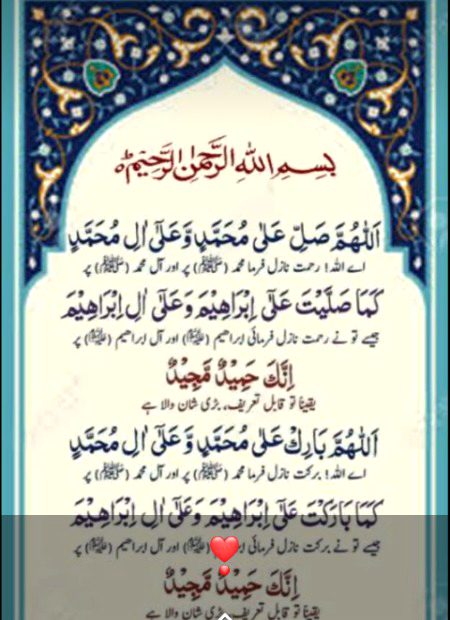 بِسْمِ اللهِ الرَّحْمٰنِ الرَّحِيْمِ
اَللّٰهُمَّ صَلِّ عَلٰى مُحَمَّدٍ وَّعَلٰٓى اٰلِ مُحَمَّدٍ
اے اللہ! رحمت نازل فرما محمد (ﷺ) پر اور آل محمد (ﷺ) پر
كَمَا صَلَّيْتَ عَلٰٓى اِبْرَاهِيْمَ وَعَلٰٓى اٰلِ اِبْرَاهِيْمَ
جیسے تو نے رحمت نازل فرمائی ابراھیم (علیہ السلام) اور آل ابراھیم (علیہ السلام) پر
اِنَّكَ حَمِيْدٌ مَّجِيْدٌ
یقیناً تو قابل تعریف، بڑی شان والا ہے
اَللّٰهُمَّ بَارِكْ عَلٰى مُحَمَّدٍ وَّعَلٰٓى اٰلِ مُحَمَّدٍ
اے اللہ! برکت نازل فرما محمد (ﷺ) پر اور آل محمد (ﷺ) پر
كَمَا بَارَكْتَ عَلٰٓى اِبْرَاهِيْمَ وَعَلٰٓى اٰلِ اِبْرَاهِيْمَ
جیسے تو نے برکت نازل فرمائی (علیہ السلام) اور آل ابراھیم (علیہ السلام) پر
اِنَّكَ حَمِيْدٌ مَّجِيْدٌ
یقیناً تو قابل تعریف، بڑی شان والا ہے